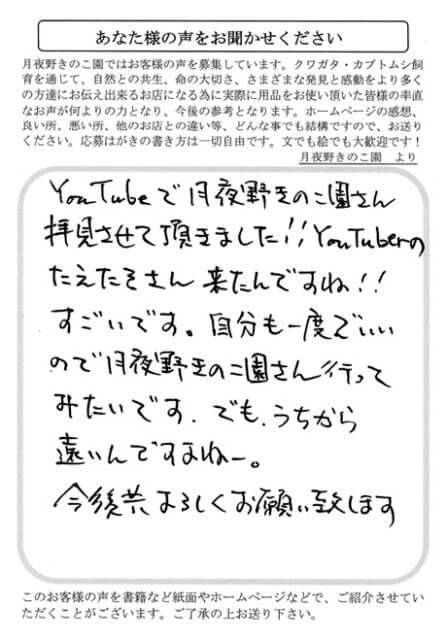 あなた様の声をお聞かせください
月夜野きのこ園ではお客様の声を募集しています。クワガタ・カブトムシ飼
育を通じて、自然との共生、命の大切さ、さまざまな発見と感動をより多く
の方達にお伝え出来るお店になる為に実際に用品をお使い頂いた皆様の率直
なお声が何よりの力となり、今後の参考となります。ホームページの感想、
良い所、悪い所、他のお店との違い等、どんな事でも結構ですので、お送り
ください。応募はがきの書き方は一切自由です。文でも絵でも大歓迎です！
月夜野きのこ園　より
YouTubeで月夜野きのこ園さん
拝見させて頂きました!!YouTuberの
たえたそさん 来たんですね!!
すごいです。自分も一度でいい
ので月夜野きのこ園さん行って
みたいです、でも、うちから
遠いんですよねー。
今後共よろしくお願い致します
このお客様の声を書籍など紙面やホームページなどで、ご紹介させてい
ただくことがございます。ご了承の上お送り下さい。